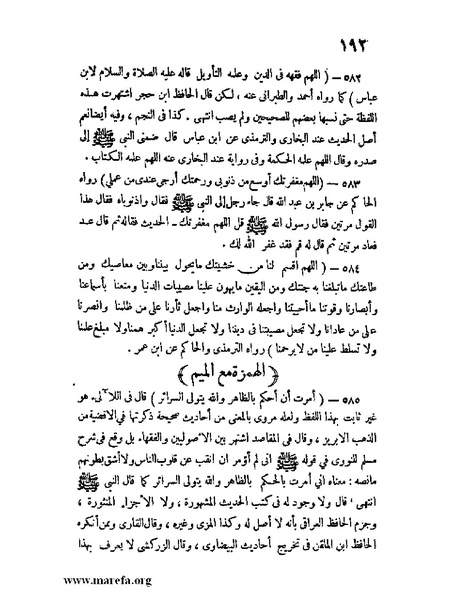 ١٩٢
٥٨٢ – ( اللهم فقهه فى الدين وعلمه التأويل قاله عليه الصلاة والسلام لابن
عباس ) كما رواه أحمد والطبرانى عنه ، لكن قال الحافظ ابن حجر اشتهرت هذه
اللفظة حتى نسبها بعضهم للصحيحين ولم يصب انتهى. كذا فى النجم ، وفيه أيضا نعم
أصل الحديث عند البخارى والترمذى عن ابن عباس قال ضمنى النبى ﷺ إلى
صدره وقال اللهم علمه الحكمة وفى رواية عند البخارى عنه اللهم علمه الكتاب .
٥٨٣ – (اللهم مغفرتك أوسع من ذنوبى ورحمتك أرجى عندى من عملى) رواه
الحاكم عن جابر بن عبد الله قال جاء رجل إلى النبى ﷺ فقال واذنوباه فقال هذا
القول مرتين فقال رسول الله ﷺ قل اللهم مغفرتك ــ الحديث فقاله ثم قال عد
فعاد مرتين ثم قال له قم فقد غفر الله لك .
٥٨٤ – ( اللهم اقسم لنا من خشيتك مايحول بيننا وبين معاصيك ومن
طاعتك ماتبلغنا به جنتك ومن اليقين مايهون علينا مصيبات الدنيا ومتعنا بأسماعنا
وأبصارنا وقوتنا ما أحييتنا واجعله الوارث منا واجعل ثأرنا على من ظلمنا وانصرنا
على من عادانا ولا تجعل مصيبتنا فى ديننا ولا تجعل الدنيا أكبر همنا ولا مبلغ علمنا
ولا تسلط علينا من لا يرحمنا ) رواه الترمذى والحاكم عن ابن عمر .
﴿ الهمزة مع الميم ﴾
٥٨٥ – ( أمرت أن أحكم بالظاهر والله يتولى السرائر ) قال فى اللآلى. هو
غير ثابت بهذا اللفظ ولعله مروى بالمعنى من أحاديث صحيحة ذكرتها فى الاقضية من
الذهب الابريز ، وقال فى المقاصد اشتهر بين الاصوليين والفقهاء بل وقع فى شرح
مسلم للنووى فى قوله ﷺ انى لم أؤمر ان انقب عن قلوب الناس ولا أشق بطونهم
مانصه : معناه انى أمرت بالحكم بالظاهر والله يتولى السرائر كما قال النبى ﷺ
انتهى ، قال ولا وجود له فى كتب الحديث المشهورة ، ولا الأجزاء المنثورة ،
وجزم الحافظ العراقى بأنه لا أصل له وكذا المزى وغيره ، وقال القارى وممن أنكره
الحافظ ابن الملقن فى تخريج أحاديث البيضاوى ، وقال الزركشى لا يعرف بهذا
www.marefa.org